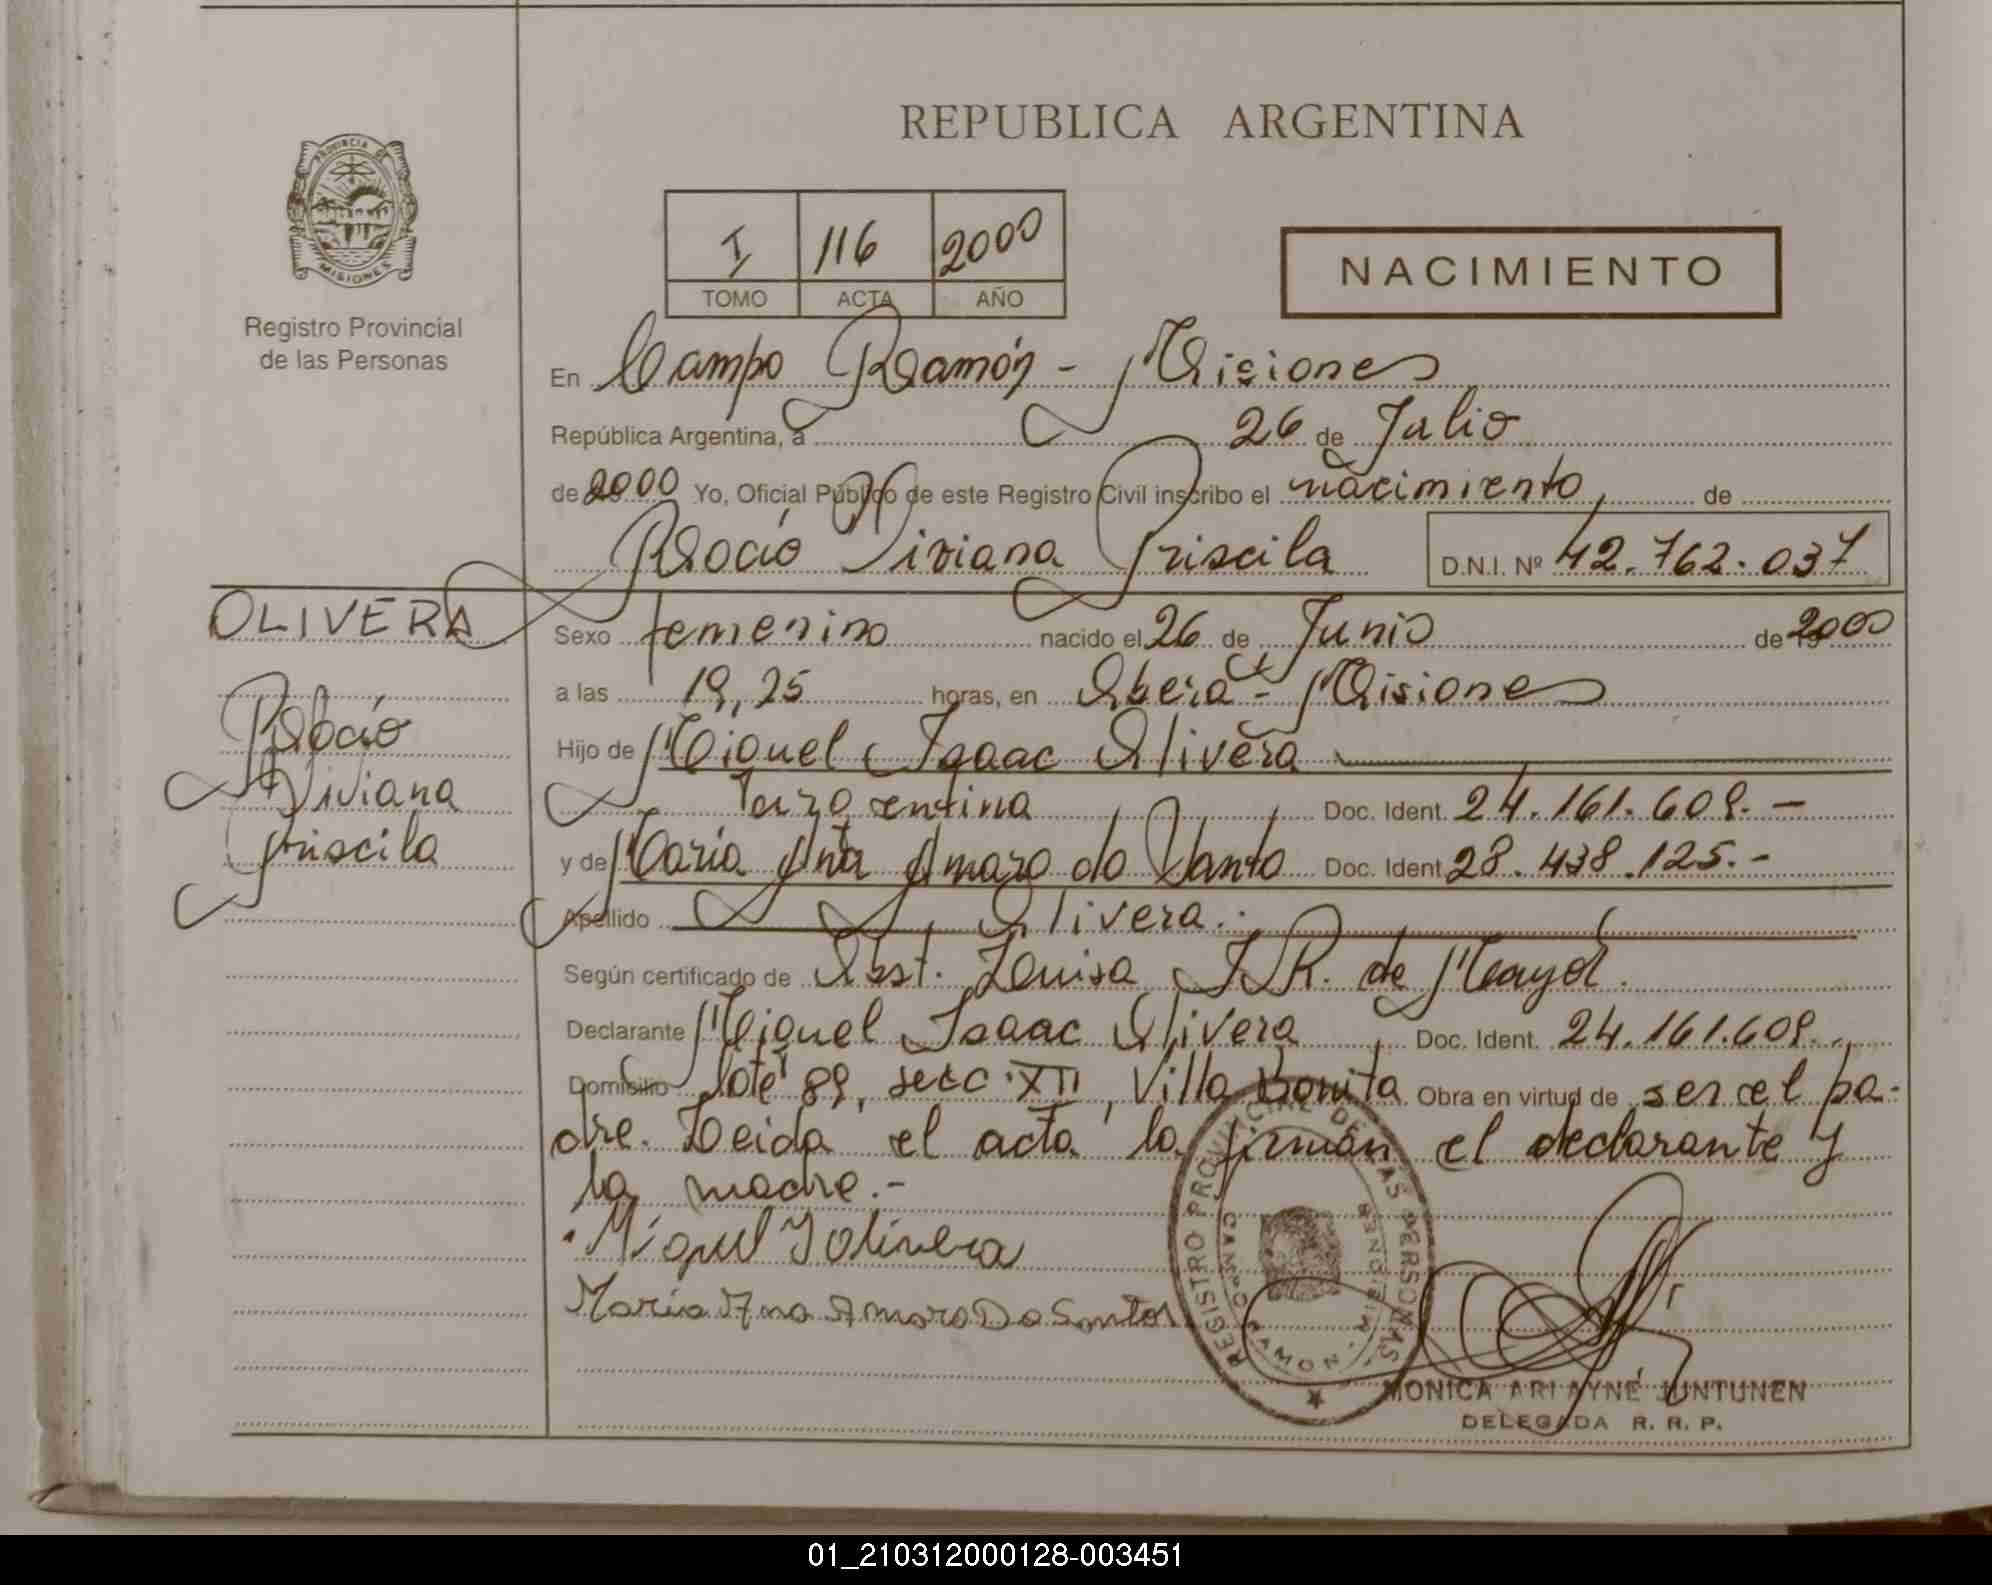 REPUBLICA ARGENTINA
PROVINCIA DE
MISIONES
Registro Provincial
de las Personas
I 116 2000
TOMO ACTA AÑO
NACIMIENTO
En Campo Ramón - Misiones
República Argentina, a 26 de Julio
de 2000 Yo, Oficial Público de este Registro Civil inscribo el nacimiento, de
Rocío Viviana Priscila D.N.I. Nº 42.762.037
OLIVERA
Rocío
Viviana
Priscila
Sexo femenino nacido el 26 de Junio de 2000
a las 19,25 horas, en Oberá - Misiones
Hijo de Miguel Isaac Olivera
argentina Doc. Ident. 24.161.609.-
y de María Ana Amaro do Santo Doc. Ident. 28.438.125.-
Apellido Olivera.
Según certificado de Obst. Luisa J.R. de Mayol.
Declarante Miguel Isaac Olivera Doc. Ident. 24.161.609.
Domicilio lote 89, secc. XII, Villa Bonita Obra en virtud de ser el pa-
dre. Leida el acta la firman el declarante y
la madre.-
Miguel I Olivera
Maria Ana Amaro Do Santos
REGISTRO PROVINCIAL DE LAS PERSONAS
CAMPO RAMON - MISIONES
MONICA ARIAYNÉ JUNTUNEN
DELEGADA R. R. P.
01_210312000128-003451